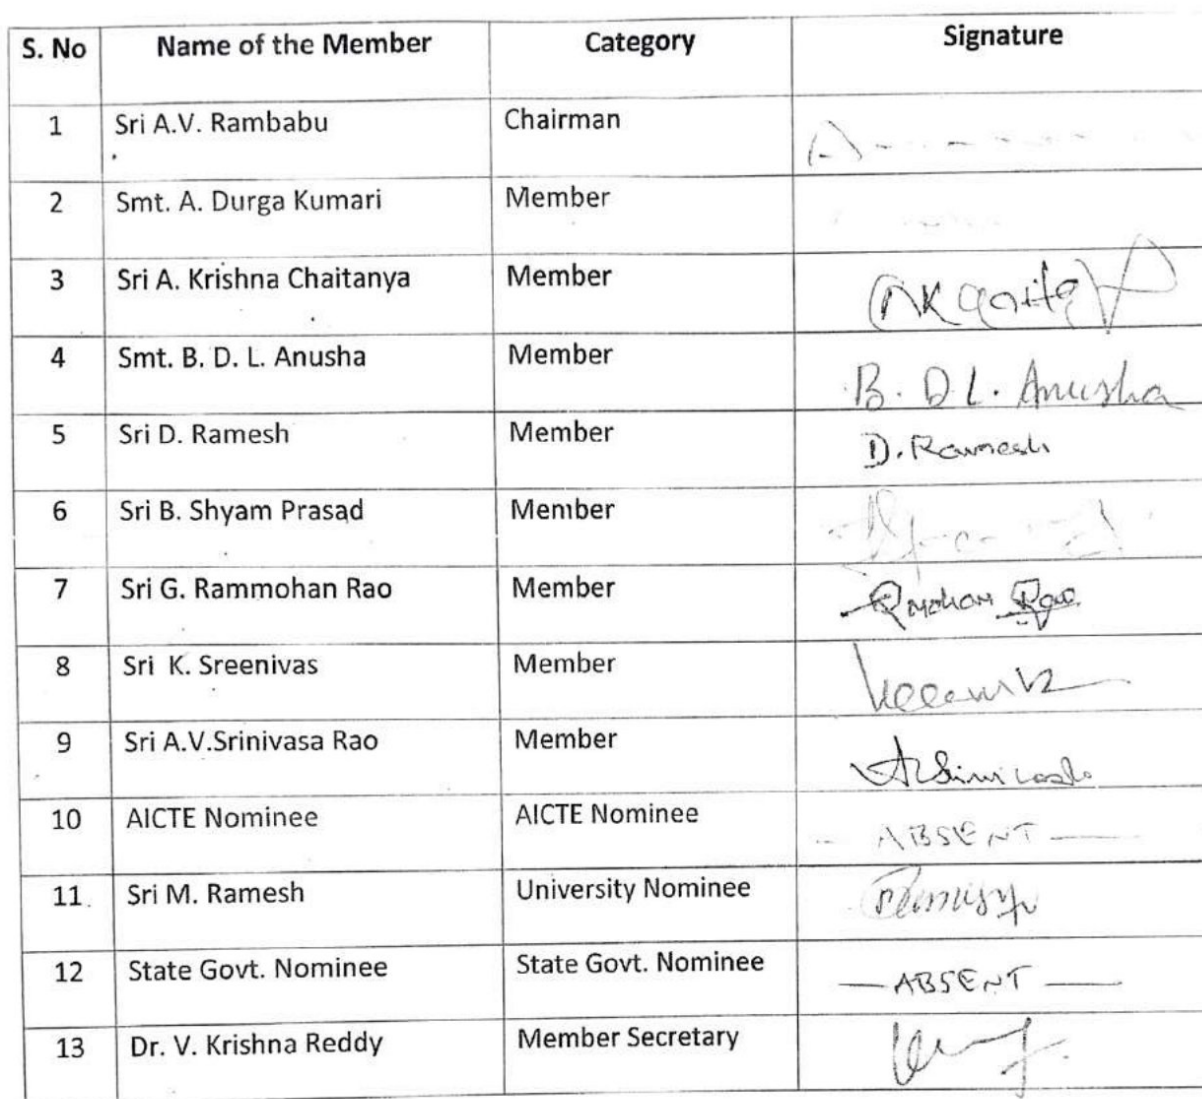 S. No Name of the Member Category Signature
1 Sri A.V. Rambabu Chairman
2 Smt. A. Durga Kumari Member
3 Sri A. Krishna Chaitanya Member
4 Smt. B. D. L. Anusha Member B. D. L. Anusha
5 Sri D. Ramesh Member D. Ramesh
6 Sri B. Shyam Prasad Member
7 Sri G. Rammohan Rao Member
8 Sri K. Sreenivas Member
9 Sri A.V.Srinivasa Rao Member
10 AICTE Nominee AICTE Nominee - ABSENT —
11 Sri M. Ramesh University Nominee
12 State Govt. Nominee State Govt. Nominee — ABSENT —
13 Dr. V. Krishna Reddy Member Secretary